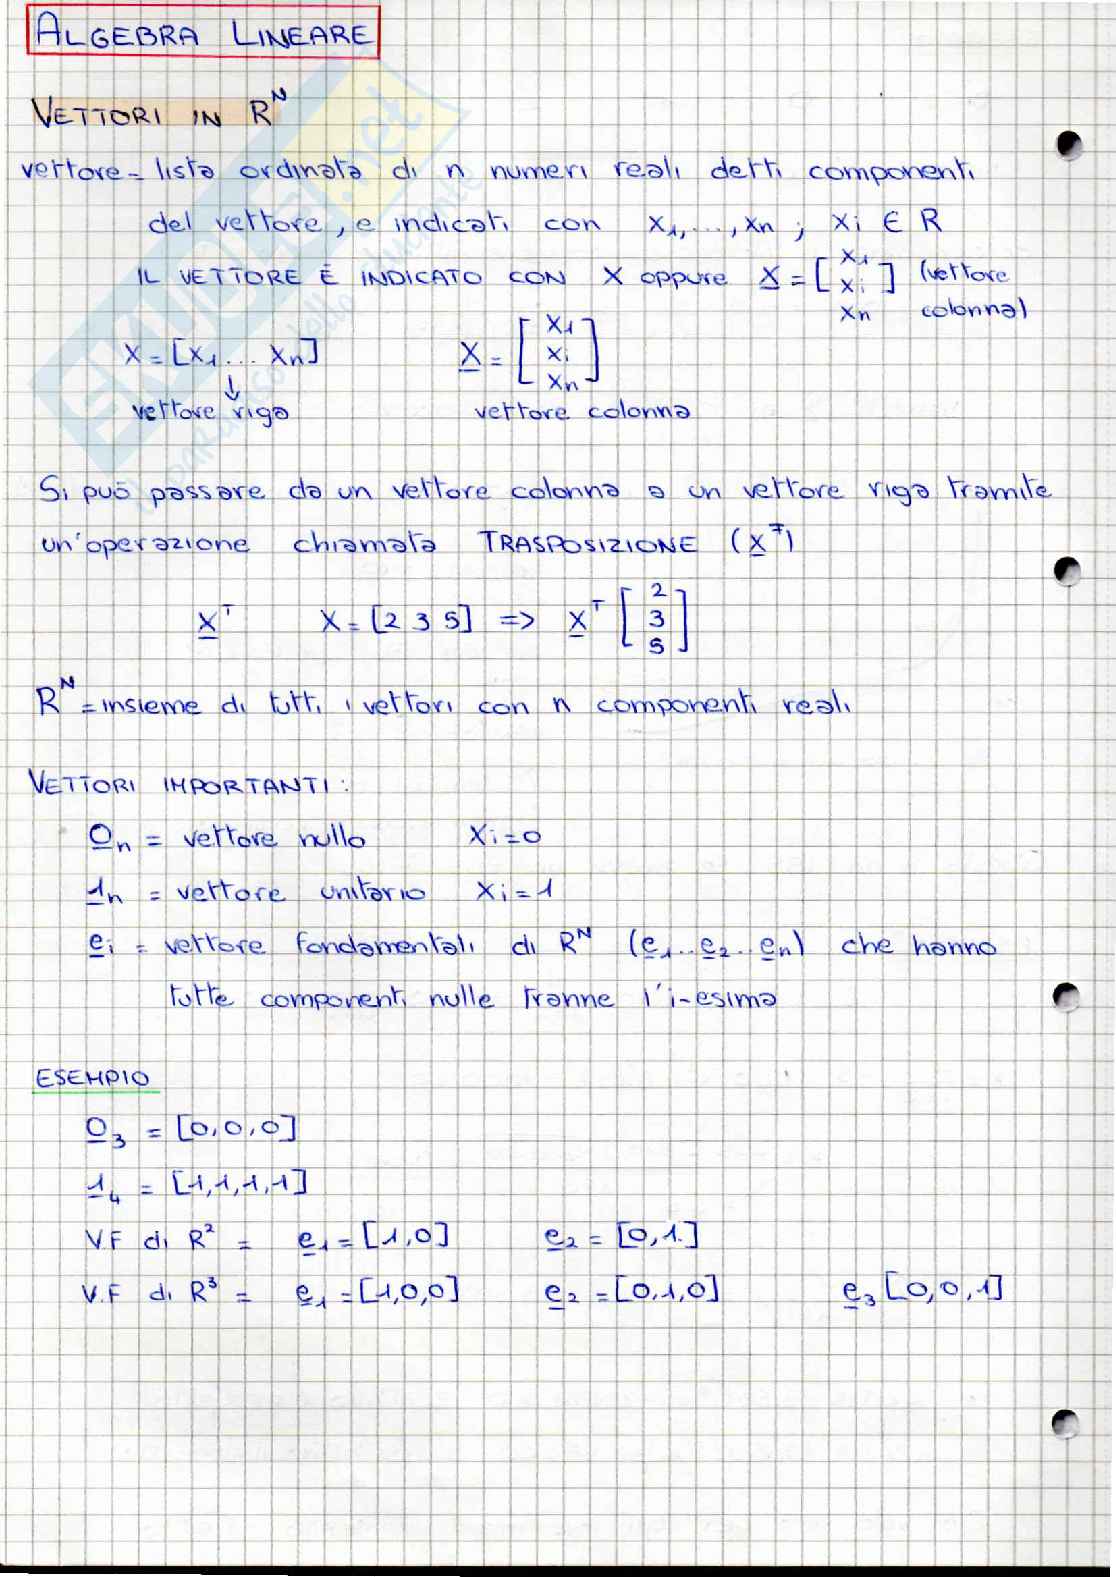 ALGEBRA LINEARE
VETTORI IN R^N
vettore = lista ordinata di n numeri reali detti componenti
del vettore, e indicati con x₁,...,xn ; xi ∈ R
IL VETTORE È INDICATO CON X oppure X = [x₁ xi xn] (vettore colonna)
X = [x₁ ... xn]    X = [x₁ xi xn]
↓
vettore riga    vettore colonna
Si può passare da un vettore colonna a un vettore riga tramite
un'operazione chiamata TRASPOSIZIONE (X^T)
X^T    X = [2 3 5] => X^T [2 3 5]
R^N = insieme di tutti i vettori con n componenti reali
VETTORI IMPORTANTI:
0n = vettore nullo    xi=0
1n = vettore unitario    xi=1
ei = vettore fondamentali di R^N (e₁..e₂..en) che hanno
tutte componenti nulle tranne l'i-esima
ESEMPIO
0₃ = [0,0,0]
1₄ = [1,1,1,1]
V.F di R² = e₁ = [1,0]    e₂ = [0,1.]
V.F di R³ = e₁ = [1,0,0]    e₂ = [0,1,0]    e₃ [0,0,1]